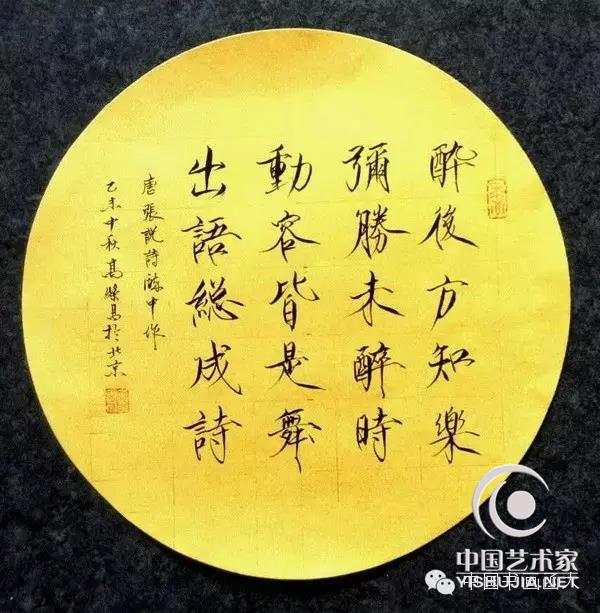 醉後方知樂
彌勝未醉時
動容皆是舞
出語総成詩
唐張說詩醉中作
乙未中秋高榮昌於北京
中国艺术家
YISHUJIA.NET